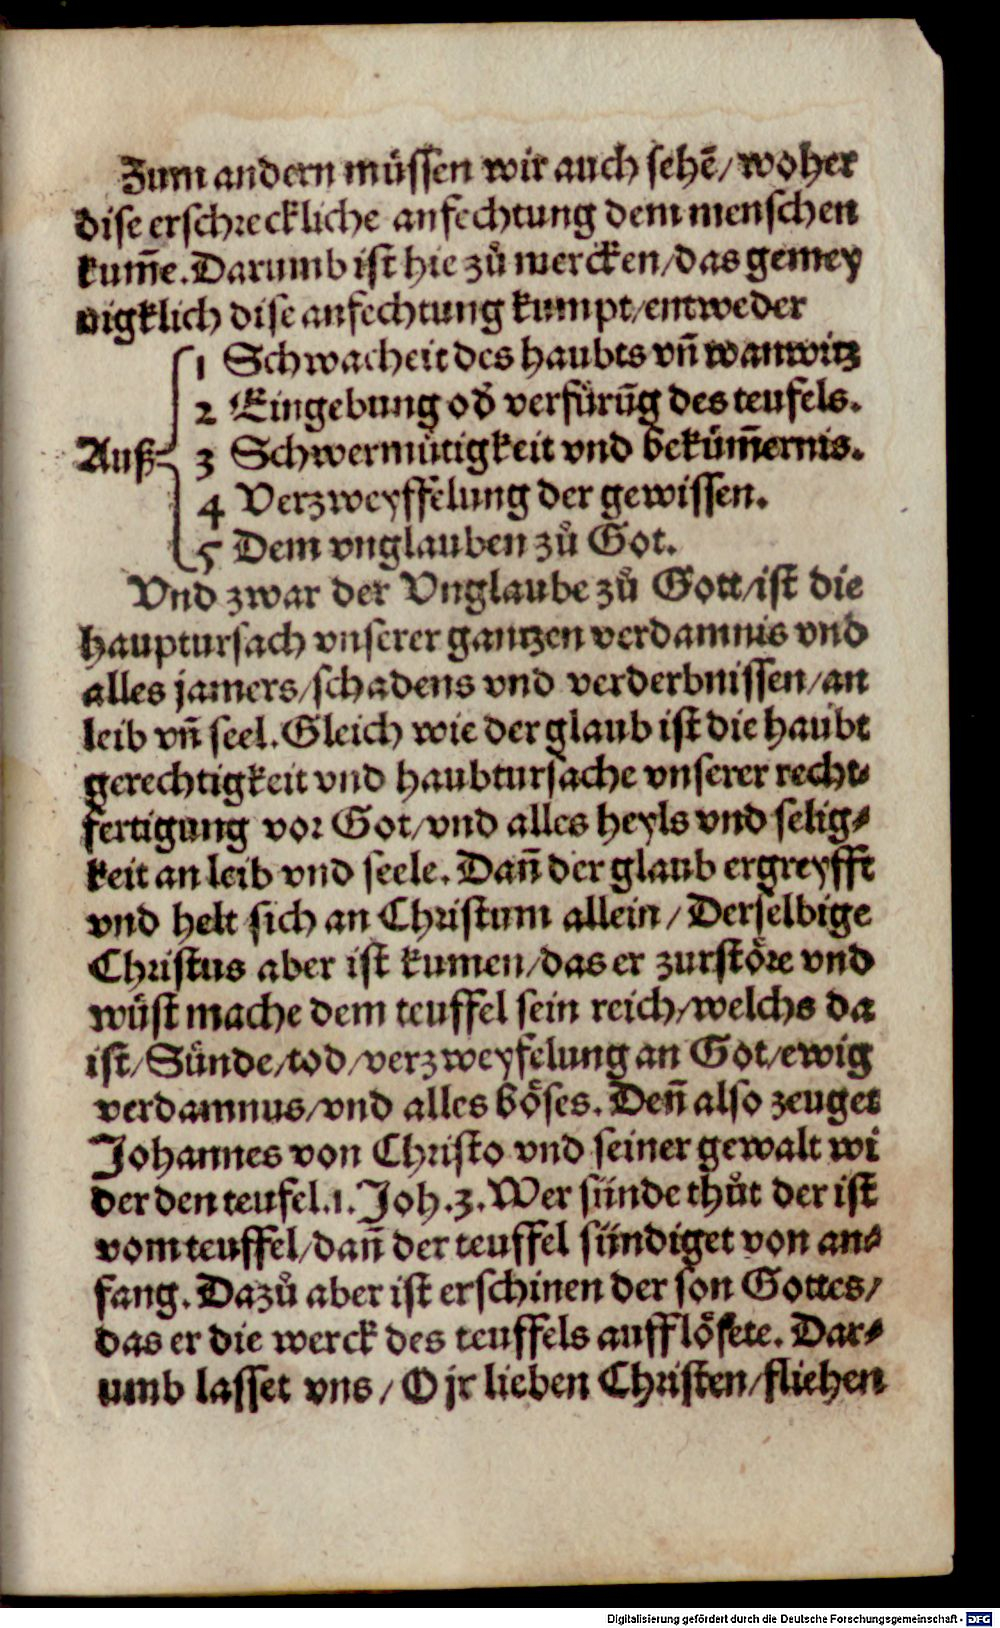 Zum andern müssen wir auch sehē/ woher
dise erschreckliche anfechtung dem menschen
kum̄e. Darumb ist hie zů mercken/ das gemey
nigklich dise anfechtung kumpt/ entweder
1 Schwacheit des haubts vn̄ wanwitz
2 Eingebung od' verfürūg des teufels.
Auß 3 Schwermütigkeit vnd bekum̄ernis.
4 Verzweyffelung der gewissen.
5 Dem vnglauben zů Got.
Vnd zwar der Vnglaube zů Gott/ ist die
hauptursach vnserer gantzen verdamnis vnd
alles jamers/ schadens vnd verderbnissen/ an
leib vn̄ seel. Gleich wie der glaub ist die haubt
gerechtigkeit vnd haubtursache vnserer recht-
fertigung vor Got/ vnd alles heyls vnd selig-
keit an leib vnd seele. Dan̄ der glaub ergreyfft
vnd helt sich an Christum allein/ Derselbige
Christus aber ist kumen/ das er zurstöre vnd
wüst mache dem teuffel sein reich/ welchs da
ist/ Sünde/ tod/ verzweyfelung an Got/ ewig
verdamnus/ vnd alles böses. Den̄ also zeuget
Johannes von Christo vnd seiner gewalt wi
der den teufel. 1. Joh. 3. Wer sünde thůt der ist
vom teuffel/ dan̄ der teuffel sündiget von an-
fang. Dazů aber ist erschinen der son Gottes/
das er die werck des teuffels aufflösete. Dar-
umb lasset vns/ O jr lieben Christen/ fliehen
Digitalisierung gefördert durch die Deutsche Forschungsgemeinschaft - DFG